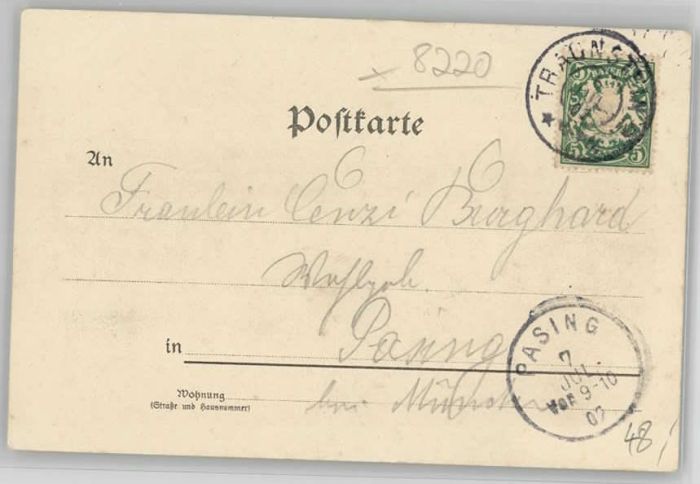 8220
TRAUNSTEIN
5 5
Postkarte
An
Fräulein Cenzi Burghard
Wohlgeb.
PASING
7
JUL
Vor 9-10
07
in Pasing
Wohnung
(Straße und Hausnummer)
bei München
48,